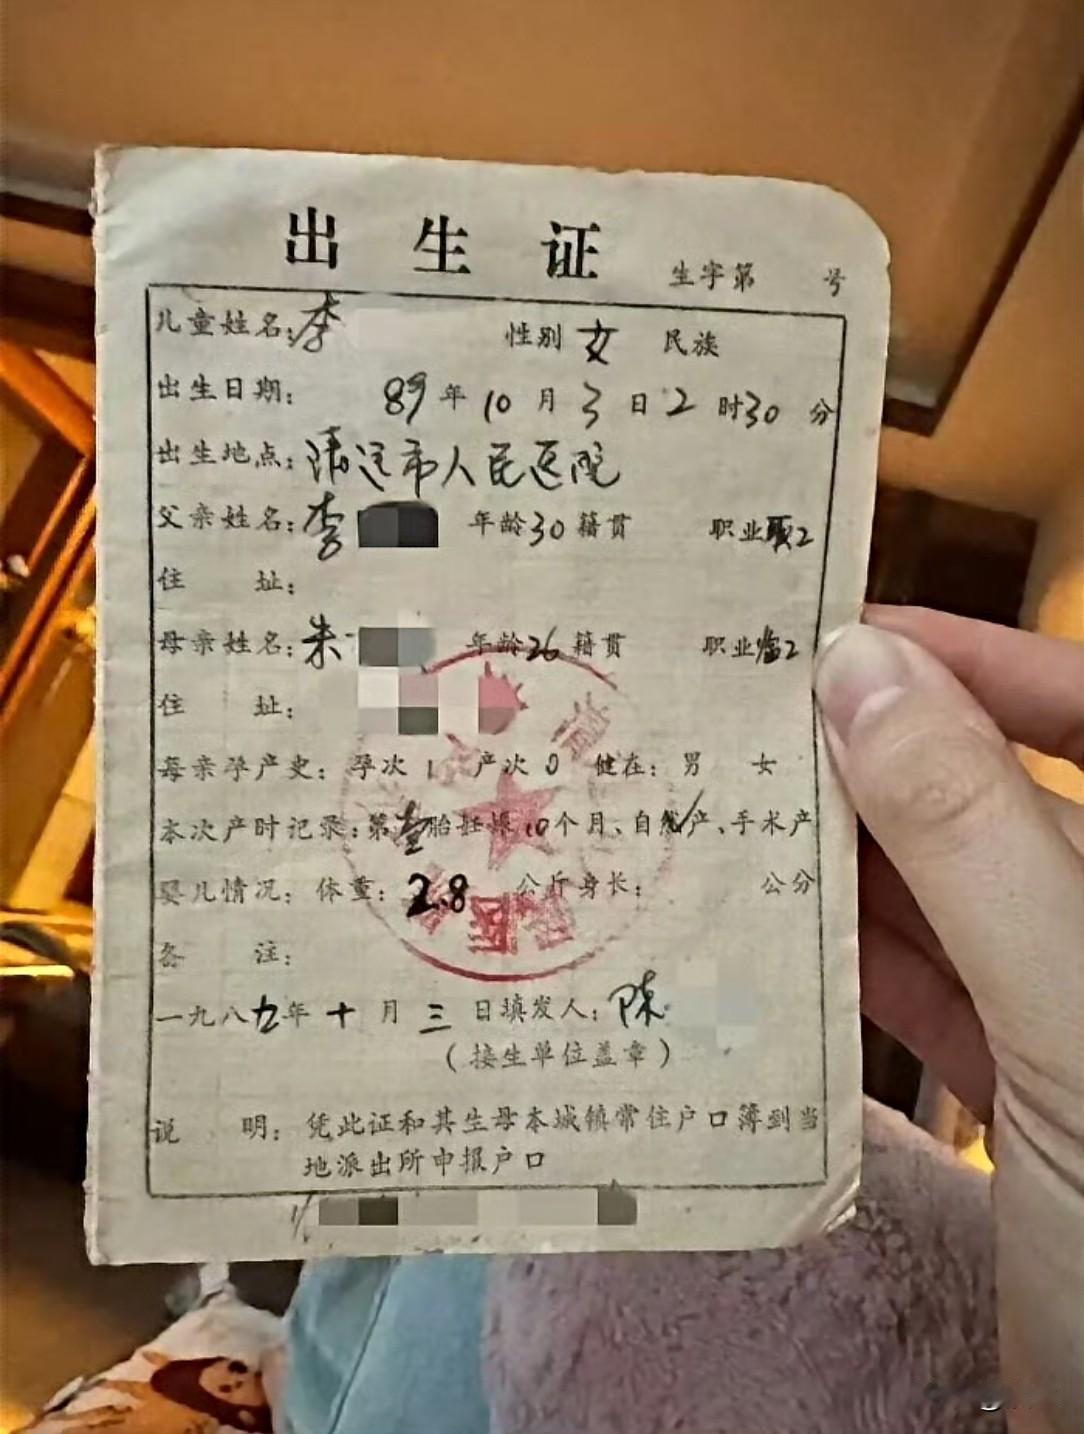 出生证
生字第 号
儿童姓名：李 性别 女 民族
出生日期： 89年10月3日2时30分
出生地点：清远市人民医院
父亲姓名：李 年龄30籍贯 职业
住 址：
母亲姓名：朱 年龄26籍贯 职业临工
住 址：
每亲孕产史：孕次1 产次0 健在：男 女
本次产时记录：第壹胎妊娠10个月、自然产、手术产
婴儿情况：体重：2.8 公斤身长： 公分
备 注：
一九八九年十月三日填发人：陈
（接生单位盖章）
说 明：凭此证和其生母本城镇常住户口簿到当
地派出所申报户口